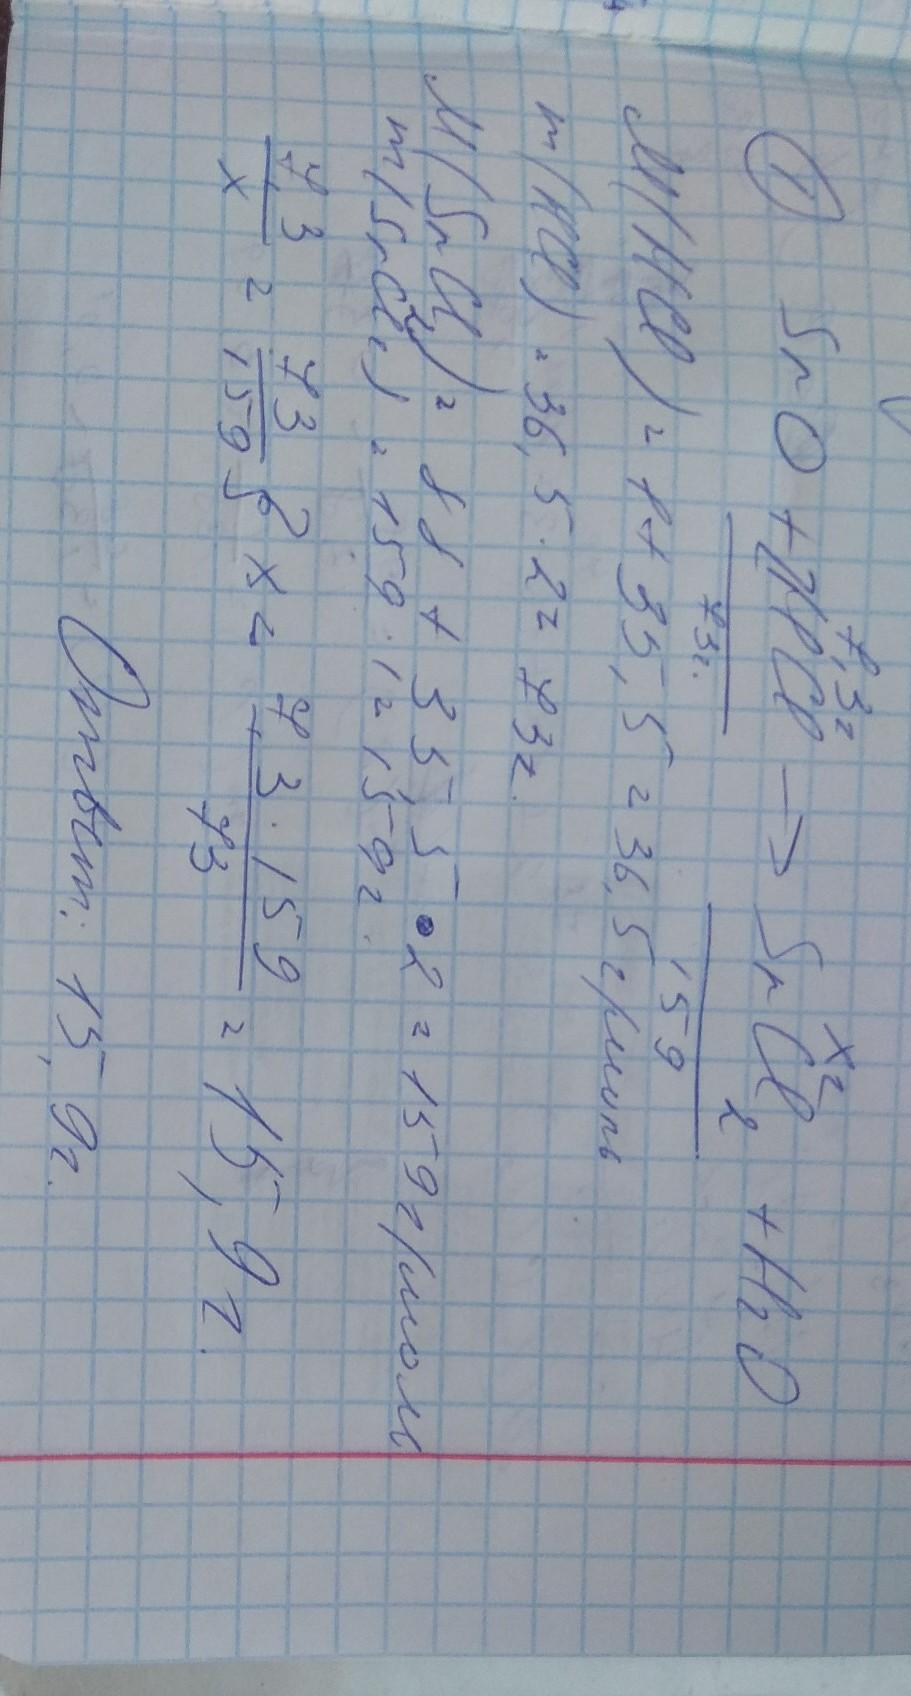 ① SrO + 2HCl → SrCl2 + H2O
7,3г
xг
73г.
159
M(HCl) = 1+35,5 = 36,5г/моль
m(HCl) = 36,5·2= 73г.
M(SrCl2) = 88+35,5·2 = 159г/моль
m(SrCl2) = 159·1= 159г.
7,3/x = 73/159; x = 7,3·159/73 = 15,9г.
Ответ: 15,9г.